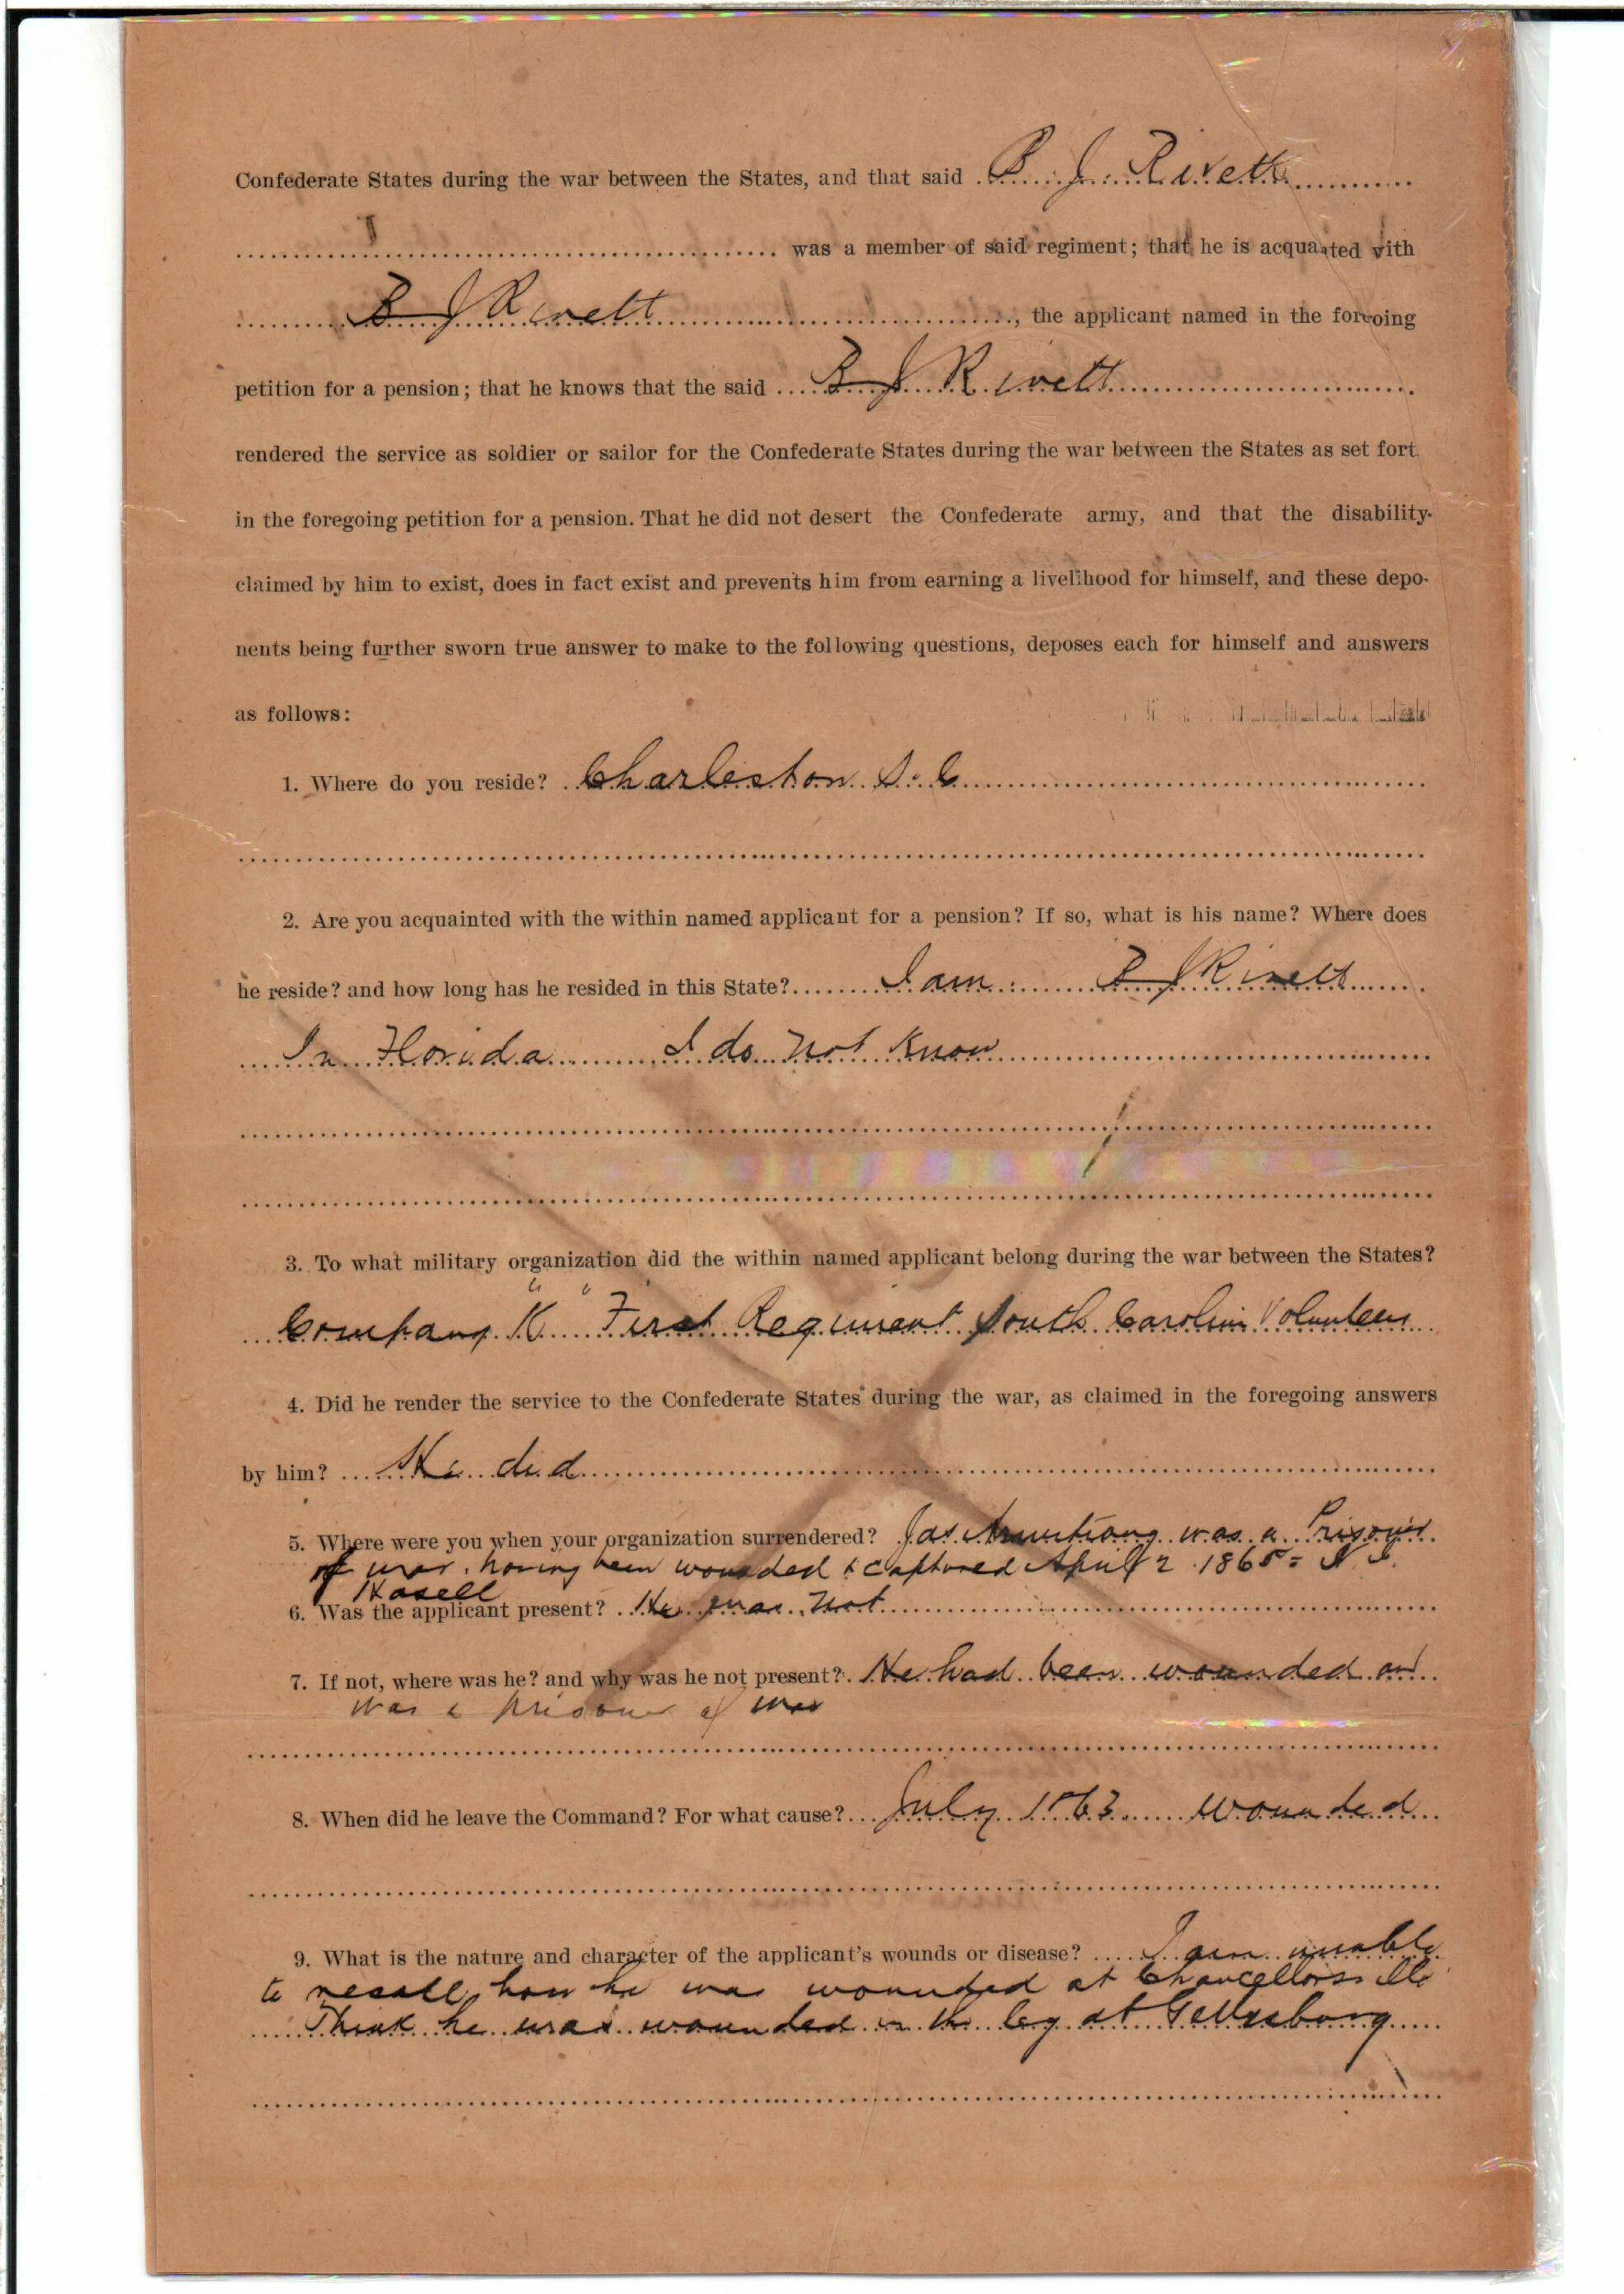 Confederate States during the war between the States, and that said B. J. Rivett
was a member of said regiment; that he is acquanted vith
B J Rivett, the applicant named in the forgoing
petition for a pension; that he knows that the said B J Rivett
rendered the service as soldier or sailor for the Confederate States during the war between the States as set fort
in the foregoing petition for a pension. That he did not desert the Confederate army, and that the disability
claimed by him to exist, does in fact exist and prevents him from earning a livelihood for himself, and these depo-
nents being further sworn true answer to make to the following questions, deposes each for himself and answers
as follows:
1. Where do you reside? Charleston S. C
2. Are you acquainted with the within named applicant for a pension? If so, what is his name? Where does
he reside? and how long has he resided in this State? I am B J Rivett
In Florida I do not Know
3. To what military organization did the within named applicant belong during the war between the States?
Company "K" First Regiment South Carolina Volunteers
4. Did he render the service to the Confederate States during the war, as claimed in the foregoing answers
by him? He did
5. Where were you when your organization surrendered? Jas Armstrong was a Prisoner
of war, having been wounded & captured April 2 1865
Hasell
6. Was the applicant present? He was not
7. If not, where was he? and why was he not present? He had been wounded and
was a prisoner of war
8. When did he leave the Command? For what cause? July 1863 Wounded
9. What is the nature and character of the applicant's wounds or disease? I am unable
to recall how he was wounded at Chancellorsville
Think he was wounded in the leg at Gettysburg